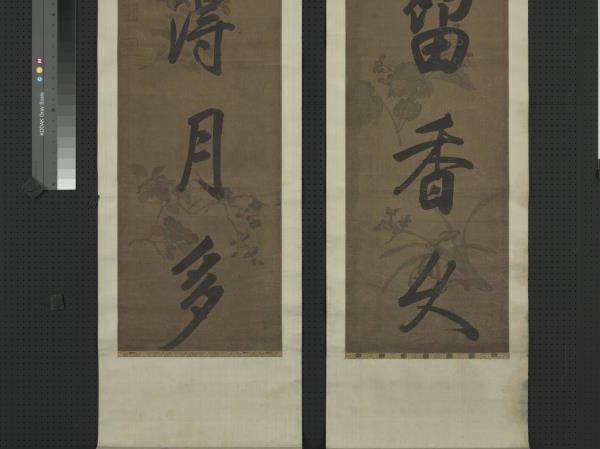 留香久
得月多
KODAK Gray Scale